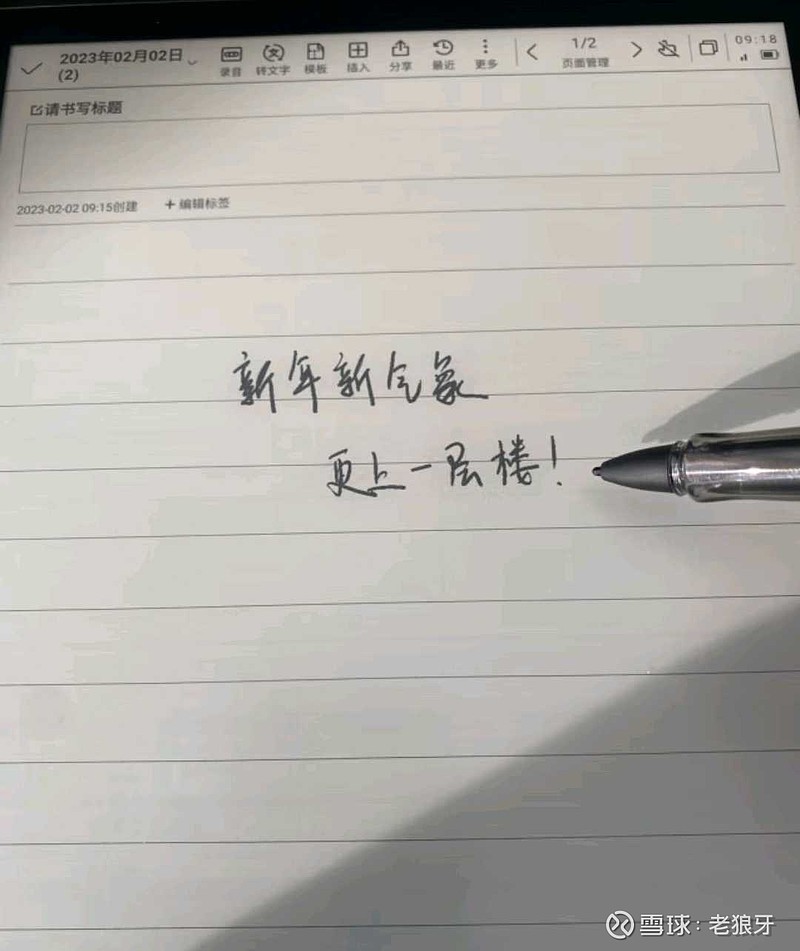 2023年02月02日
(2)
录音 转文字 模板 插入 分享 最近 更多 1/2 页面管理 09:18
请书写标题
2023-02-02 09:15创建 + 编辑标签
新年新气象
更上一层楼!
雪球:老狼牙